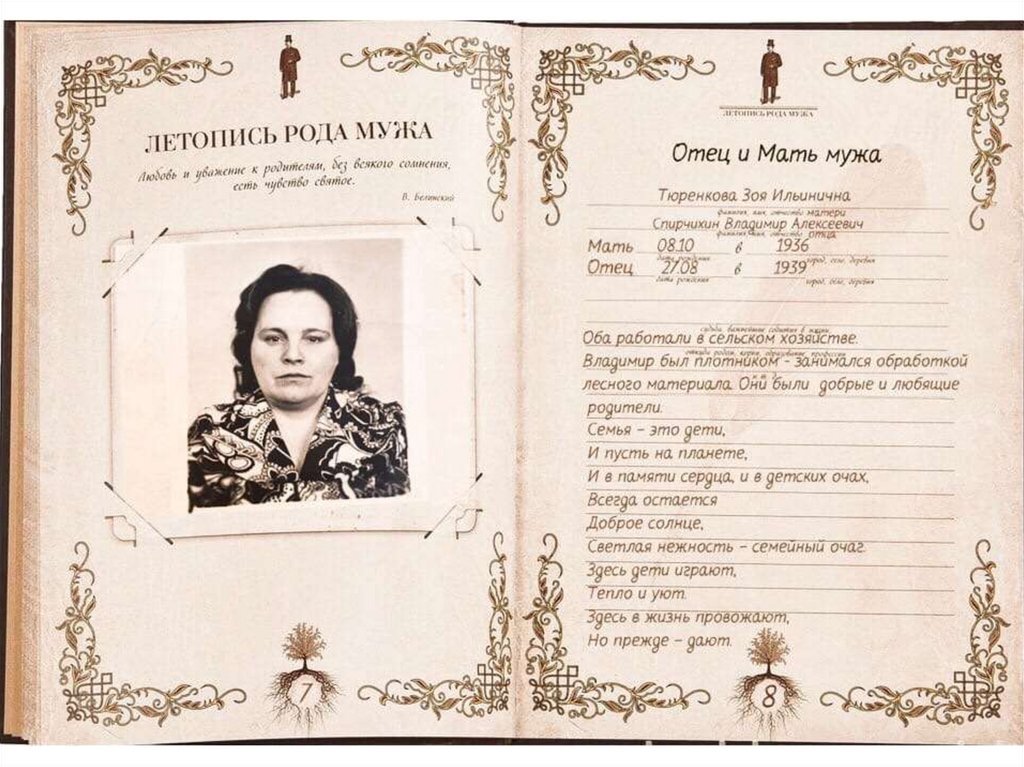 ЛЕТОПИСЬ РОДА МУЖА
Любовь и уважение к родителям, без всякого сомнения,
есть чувство святое.
В. Белинский
7
ЛЕТОПИСЬ РОДА МУЖА
Отец и Мать мужа
Тюренкова Зоя Ильинична
фамилия, имя, отчество матери
Спирчихин Владимир Алексеевич
фамилия, имя, отчество отца
Мать 08.10 в 1936
дата рождения город, село, деревня
Отец 27.08 в 1939
дата рождения город, село, деревня
судьба, важнейшие события в жизни,
Оба работали в сельском хозяйстве.
откуда родом, корни, образование, профессия
Владимир был плотником - занимался обработкой
лесного материала. Они были добрые и любящие
родители.
Семья – это дети,
И пусть на планете,
И в памяти сердца, и в детских очах,
Всегда остается
Доброе солнце,
Светлая нежность – семейный очаг.
Здесь дети играют,
Тепло и уют.
Здесь в жизнь провожают,
Но прежде – дают.
8